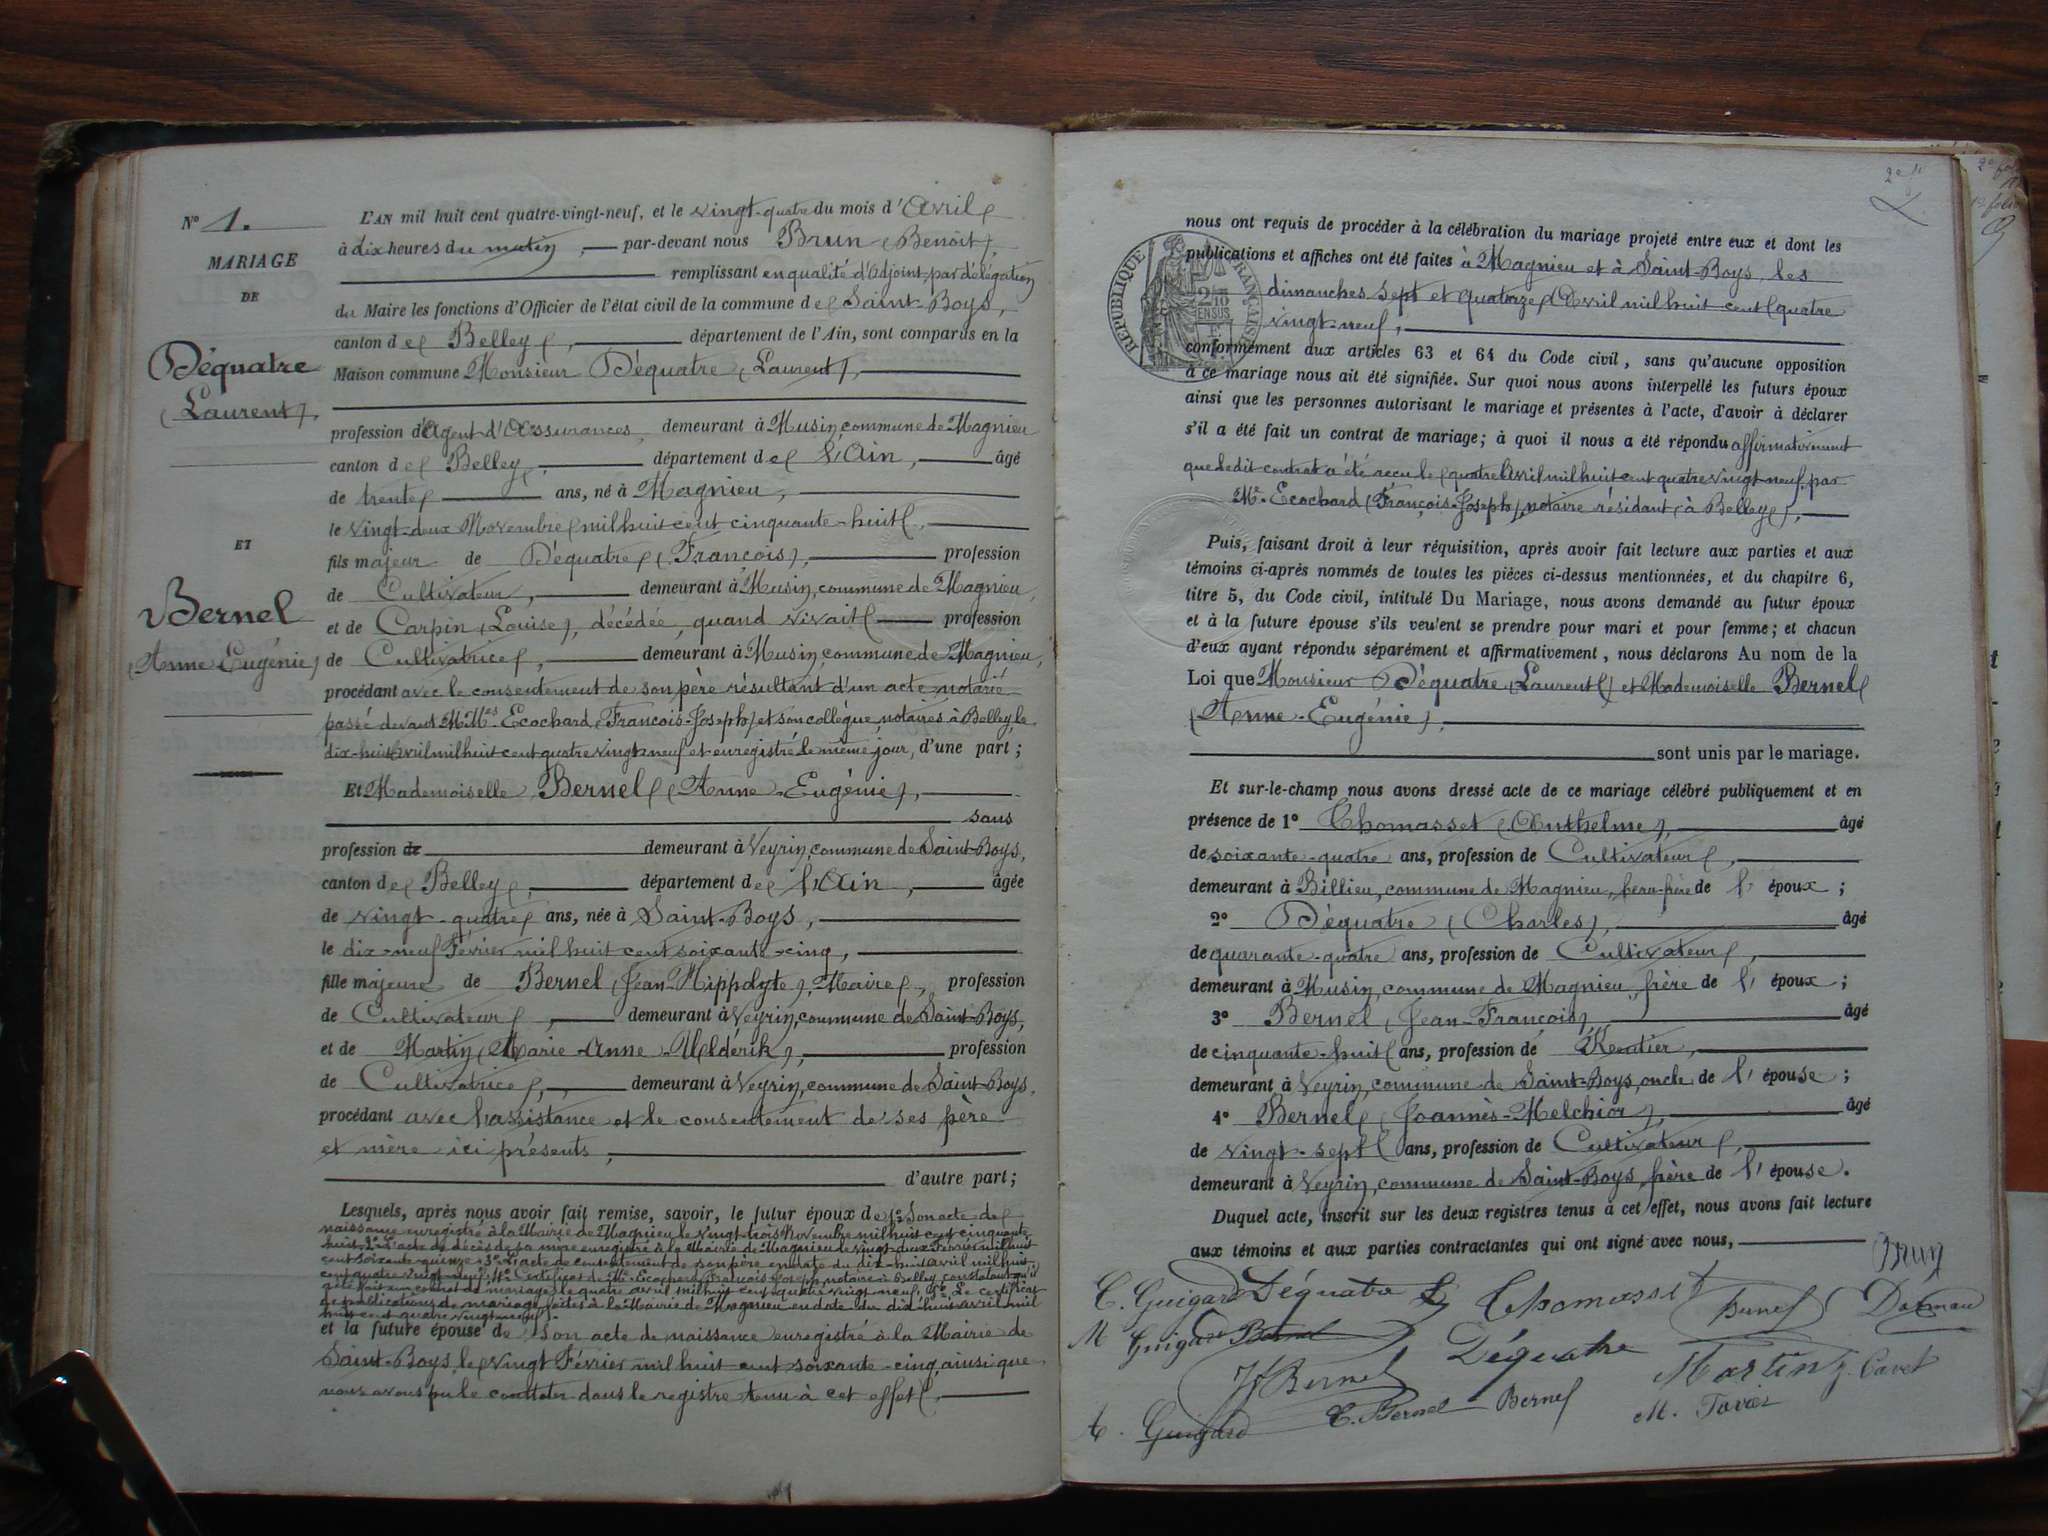 N° 1.
MARIAGE
DE
Déquatre
(Laurent),
ET
Bernel
(Anne Eugénie)
L'AN mil huit cent quatre-vingt-neuf, et le vingt-quatre du mois d'Avril
à dix heures du matin, par-devant nous Brun (Benoit),
remplissant en qualité d'Adjoint, par délégation
du Maire les fonctions d'Officier de l'état civil de la commune de Saint-Boys,
canton de Belley, département de l'Ain, sont comparus en la
Maison commune Monsieur Déquatre (Laurent),
profession d'Agent d'Assurances, demeurant à Musin, commune de Magnieu
canton de Belley, département de l'Ain, âgé
de trente ans, né à Magnieu,
le vingt-deux Novembre mil huit cent cinquante-huit,
fils majeur de Déquatre (François), profession
de Cultivateur, demeurant à Musin, commune de Magnieu,
et de Carpin (Louise), décédée, quand vivait profession
de Cultivatrice, demeurant à Musin, commune de Magnieu,
procédant avec le consentement de son père résultant d'un acte notarié
passé devant M.Mes Ecochard (François-Joseph) et son collègue, notaires à Belley, le
dix-huit Avril mil huit cent quatre vingt neuf et enregistré le même jour, d'une part ;
Et Mademoiselle Bernel (Anne-Eugénie),
sans
profession de demeurant à Veyrin, commune de Saint-Boys,
canton de Belley, département de l'Ain, âgée
de vingt-quatre ans, née à Saint-Boys,
le dix-neuf Février mil huit cent soixante-cinq,
fille majeure de Bernel (Jean-Hippolyte), Maire, profession
de Cultivateur, demeurant à Veyrin, commune de Saint-Boys,
et de Martin (Marie-Anne-Uldérik), profession
de Cultivatrice, demeurant à Veyrin, commune de Saint-Boys,
procédant avec l'assistance et le consentement de ses père
et mère ici présents,
d'autre part ;
Lesquels, après nous avoir fait remise, savoir, le futur époux de 1° Son acte de
naissance enregistré à la Mairie de Magnieu le vingt-trois Novembre mil huit cent cinquante
huit, 2° L'acte de décès de sa mère enregistré à la Mairie de Magnieu le vingt-deux Février mil huit
cent soixante-quinze, 3° L'acte de consentement de son père en date du dix-huit avril mil huit
cent quatre vingt-neuf, 4° Certificat de Me Ecochard François-Joseph, notaire à Belley, constatant qu'il
a été fait un contrat de mariage le quatre avril mil huit cent quatre vingt neuf, 5° Le certificat
de publications de mariage faites à la Mairie de Magnieu en date du dix-huit avril mil
huit cent quatre vingt neuf.
et la future épouse de Son acte de naissance enregistré à la Mairie de
Saint-Boys, le vingt Février mil huit cent soixante-cinq, ainsi que
nous avons pu le constater dans le registre tenu à cet effet,
2e
nous ont requis de procéder à la célébration du mariage projeté entre eux et dont les
publications et affiches ont été faites à Magnieu et à Saint-Boys, les
dimanches sept et quatorze Avril mil huit cent quatre
vingt-neuf,
RÉPUBLIQUE FRANÇAISE
2/10
EN SUS
conformément aux articles 63 et 64 du Code civil, sans qu'aucune opposition
à ce mariage nous ait été signifiée. Sur quoi nous avons interpellé les futurs époux
ainsi que les personnes autorisant le mariage et présentes à l'acte, d'avoir à déclarer
s'il a été fait un contrat de mariage ; à quoi il nous a été répondu affirmativement
que ledit contrat a été reçu le quatre Avril mil huit cent quatre vingt neuf, par
Me Ecochard (François-Joseph), notaire résidant à Belley,
Puis, faisant droit à leur réquisition, après avoir fait lecture aux parties et aux
témoins ci-après nommés de toutes les pièces ci-dessus mentionnées, et du chapitre 6,
titre 5, du Code civil, intitulé Du Mariage, nous avons demandé au futur époux
et à la future épouse s'ils veulent se prendre pour mari et pour femme ; et chacun
d'eux ayant répondu séparément et affirmativement, nous déclarons Au nom de la
Loi que Monsieur Déquatre (Laurent) et Mademoiselle Bernel
(Anne-Eugénie),
sont unis par le mariage.
Et sur-le-champ nous avons dressé acte de ce mariage célébré publiquement et en
présence de 1° Thomasset (Anthelme), âgé
de soixante-quatre ans, profession de Cultivateur,
demeurant à Billieu, commune de Magnieu, beau-frère de l'époux ;
2° Déquatre (Charles), âgé
de quarante-quatre ans, profession de Cultivateur,
demeurant à Musin, commune de Magnieu, frère de l'époux ;
3° Bernel (Jean-François) âgé
de cinquante-huit ans, profession de Rentier,
demeurant à Veyrin, commune de Saint-Boys, oncle de l'épouse ;
4° Bernel (Joannès-Melchior), âgé
de vingt-sept ans, profession de Cultivateur,
demeurant à Veyrin, commune de Saint-Boys, frère de l'épouse.
Duquel acte, inscrit sur les deux registres tenus à cet effet, nous avons fait lecture
aux témoins et aux parties contractantes qui ont signé avec nous,
Brun
C. Guigard Déquatre L Thomasset Bernel
M Guigard Bernel Déquatre Martin
Jf Bernel
A. Guigard C. Bernel Bernel M.